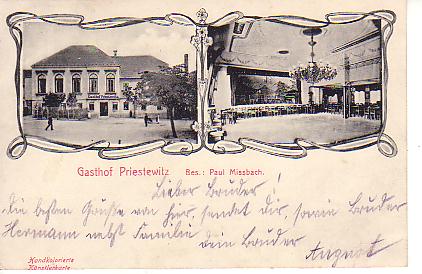 Gasthof Priestewitz Bes.: Paul Missbach.
Lieber Bruder!
die besten Grüße von hier, sendet dir, sowie Bruder
Hermann nebst Familie dein Bruder
August
Handkolorierte
Künstlerkarte